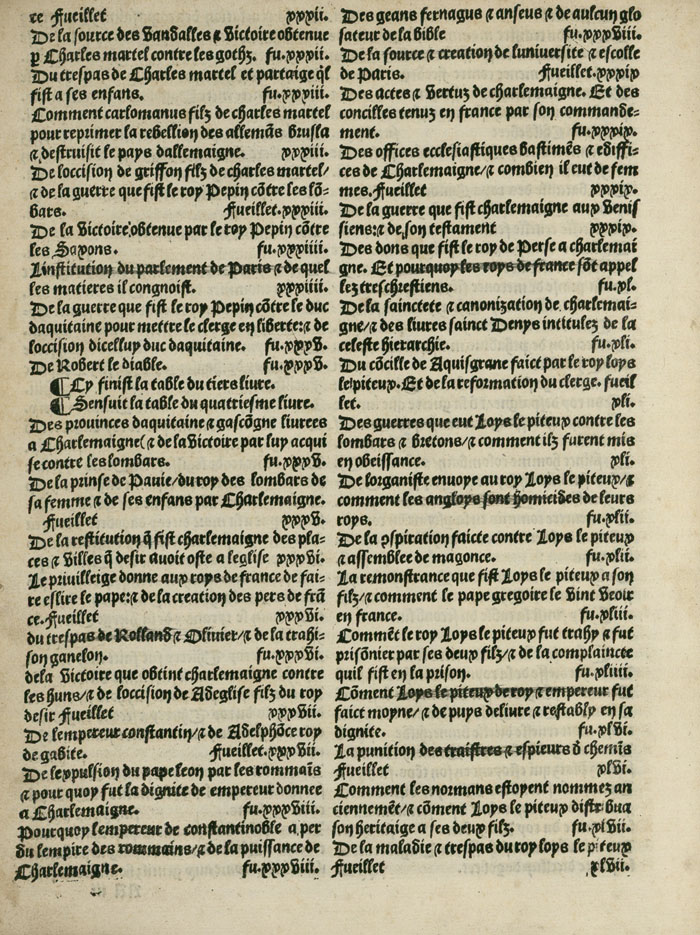 ce Fueillet xxxii.
De la source des Vandalles ⁊ Victoire obtenue
p Charles martel contre les gothz. fu.xxxii.
Du trespas de Charles martel et partaige q̃l
fist a ses enfans. fu.xxxiii.
Comment carlomanus filz de charles martel
pour reprimer la rebellion des allemãs brusla
⁊ destruisit le pays dallemaigne. xxxiii.
De loccision de griffon filz de charles martel/
⁊ de la guerre que fist le roy Pepin cõtre les lõ-
bars. Fueillet.xxxiii.
De la Victoire obtenue par le roy Pepin cõtre
les Saxons. fu.xxxiiii.
Linstitution du parlement de Paris ⁊ de quel
les matieres il congnoist. xxxiiii.
De la guerre que fist le roy Pepin cõtre le duc
daquitaine pour mettre le clerge en liberte:⁊ de
loccision dicelluy duc daquitaine. fu.xxxV.
De Robert le diable. fu.xxxV.
¶ Cy finist la table du tiers liure.
¶ Sensuit la table du quatriesme liure.
Des prouinces daquitaine ⁊ gascõgne liurees
a Charlemaigne(⁊ de la Victoire par luy acqui
se contre les lombars. fu.xxxV.
De la prinse de Pauie/du roy des lombars de
sa femme ⁊ de ses enfans par Charlemaigne.
Fueillet xxxV.
De la restitution q̃ fist charlemaigne des pla-
ces ⁊ Villes q̃ desir auoit oste a leglise xxxVi.
Le priuilleige donne aux roys de france de fai-
re eslire le pape:⁊ de la creation des pers de frã
ce. Fueillet xxxVi.
du trespas de Rolland ⁊ Oliuier/⁊ de la trahi-
son ganelon. fu.xxxVi.
dela Victoire que obtint charlemaigne contre
les huns/⁊ de loccision de Adeglise filz du roy
desir Fueillet xxxVii.
De lempereur constantin/⁊ de Adelphõce roy
de gabite. Fueillet.xxxVii.
De lexpulsion du pape leon par les rommais
⁊ pour quoy fut la dignite de empereur donnee
a Charlemaigne. fu.xxxViii.
Pourquoy lempereur de constantinoble a per
du lempire des rommains/⁊ de la puissance de
Charlemaigne. fu.xxxViii.
Des geans fernagus ⁊ anseus ⁊ de aulcun glo
sateur de la bible fu.xxxViii.
De la source ⁊ creation de luniuersite ⁊ escolle
de Paris. Fueillet.xxxix
Des actes ⁊ Vertuz de charlemaigne. Et des
concilles tenuz en france par son commande-
ment. fu.xxxix.
Des offices ecclesiastiques bastimẽs ⁊ ediffi-
ces de Charlemaigne/⁊ combien il eut de fem
mes. Fueillet xxxix.
De la guerre que fist charlemaigne aux Venis
siens:⁊ de son testament xxxix.
Des dons que fist le roy de Perse a charlemai
gne. Et pourquoy les roys de france sõt appel
lez treschrestiens. fu.xl.
De la sainctete ⁊ canonization de charlemai-
gne/⁊ des liures sainct Denys intitulez de la
celeste hierarchie. fu.xli.
Du cõcille de Aquisgrane faict par le roy loys
le piteux. Et de la reformation du clerge. fueil
let. xli.
Des guerres que eut Loys le piteux contre les
lombars ⁊ bretons/⁊ comment ilz furent mis
en obeissance. xli.
De lorganiste enuoye au roy Loys le piteux/⁊
comment les angloys sont homicides de leurs
roys. fu.xlii.
De la ꝯspiration faicte contre Loys le piteux
⁊ assemblee de magonce. fu.xlii.
La remonstrance que fist Loys le piteux a son
filz/⁊ comment le pape gregoire le Vint Veoir
en france. fu.xliii.
Commẽt le roy Loys le piteux fut trahy ⁊ fut
prisõnier par ses deux filz/⁊ de la complaincte
quil fist en la prison. fu.xliiii.
Cõment Loys le piteux de roy ⁊ empereur fut
faict moyne/⁊ de puys deliure ⁊ restably en sa
dignite. fu.xlVi.
La punition des traistres ⁊ espieurs d̃ chemĩs
Fueillet xlVi.
Comment les normans estoyent nommez an
ciennemẽt/⁊ cõment Loys le piteux distribua
son heritaige a ses deux filz. fu.xlVii.
De la maladie ⁊ trespas du roy loys le piteux
Fueillet xlVii.